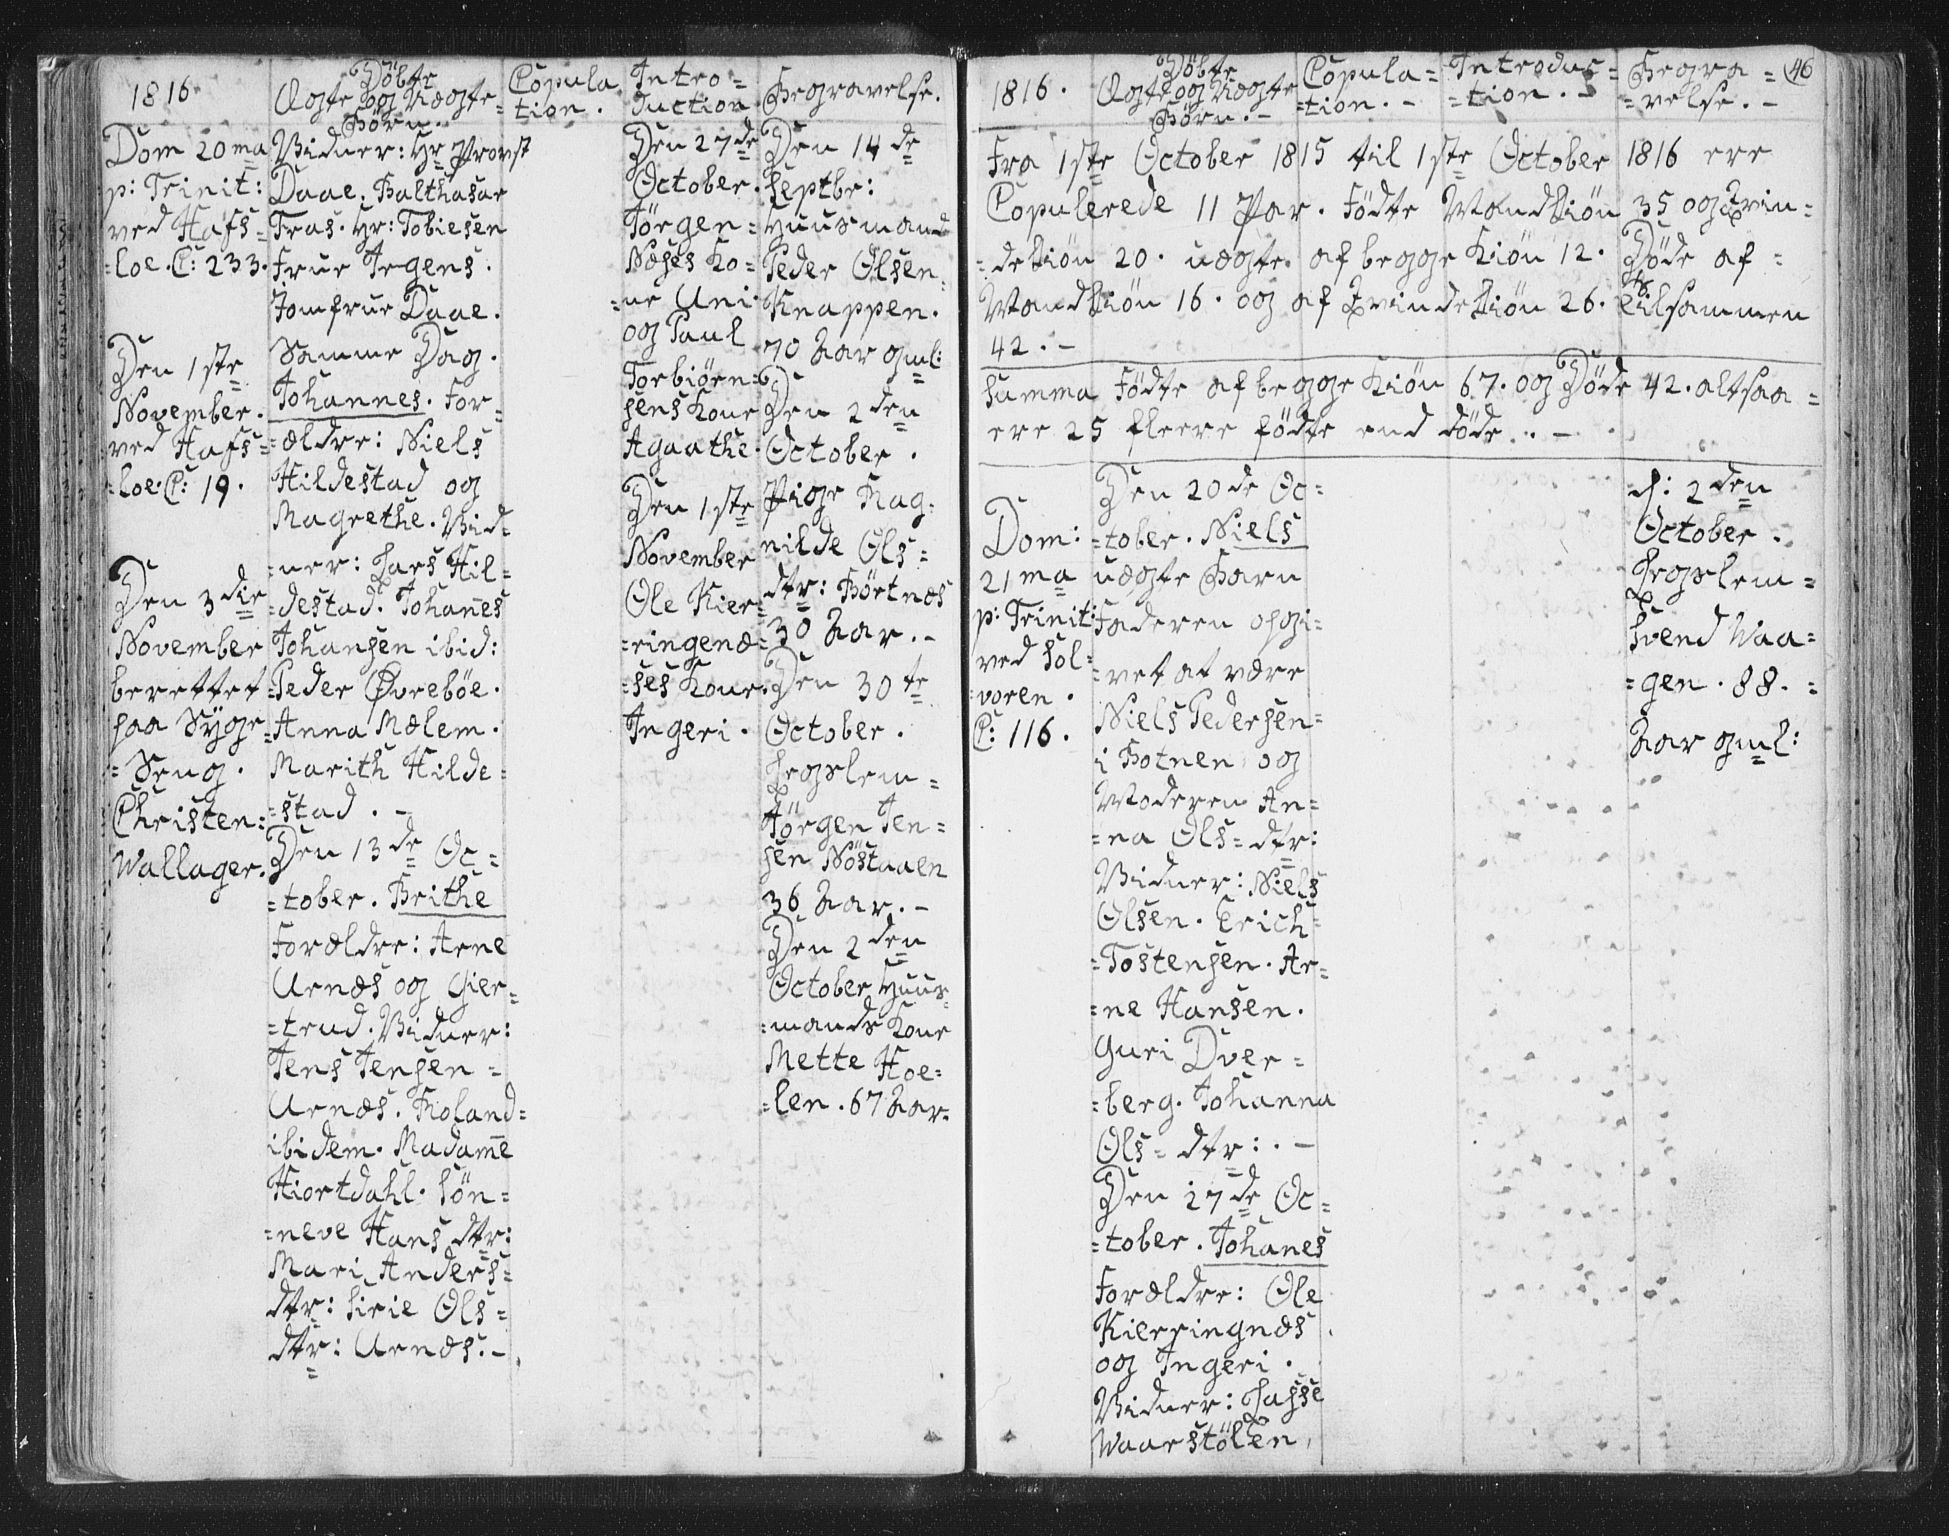 1816.
Døbte
Ægte og Uægte=
Børn.
Copula
tion.
Intro=
duction
Begravelse.
Dom 20 ma
p: Trinit:
ved Hafs=
=loe. C: 233.
Den 1 ste
November.
ved Hafs=
=loe. C: 19.
Den 3 die
November
berettet
paa Syge
=Seng.
Christen
Wallager.
Vidner: Hr Provst
Daae. Balthasar
Fras. Hr: Tobiesen
Frue Irgens.
Jomfrue Daae.
Samme Dag.
Johannes. For=
=ældre: Niels
Hildestad og
Magrethe. Vid=
=ner: Lars Hil=
=destad. Johanes
Johansen ibid:
Peder Øvrebøe.
Anna Mælem.
Marith Hilde=
=stad. -
Den 13 de Oc=
=tober. Brithe
Forældre: Arne
Urnæs og Gier=
=trud. Vidner:
Jens Jensen =
Urnæs. Roland=
ibidem. Madame
Hiortdahl. Søn=
=neve Hans dtr:
Mari Anders=
dtr: Sirie Ols=
dtr: Urnæs. -
Den 27 de
October.
Jörgen=
Næses Ko=
=ne Uni
og Paul
Torbiørn=
sens Kone
Agaathe.
Den 1 ste
November
Ole Kier=
=ringenæ=
=ses Kone.
Ingeri.
Den 14 de
Septbr:
Huusmand
Peder Olsen
Knappen.
70 Aar gml:
Den 2 den
October.
Pige Rag=
nilde Ols=
dtr: Børtnæs
30 Aar. -
Den 30 te
October.
Legslem=
Jörgen Jen=
sen Nöstaaen
36 Aar. -
Den 2 den
October Huus=
=mands Kone
Mette Hoe=
=len. 67 Aar.
46
1816.
Døbte
Ægte og Uægte
Børn. -
Copula=
=tion. -
Introduc=
=tion. -
Begra=
=velse. -
Fra 1ste October 1815 til 1ste October 1816 ere
Copulerede 11 Par. Födte Mandkiön 35 og Qvin=
=dekiön 20. uægte af begge Kiön 12. Døde af =
Mandkiön 16. og af Qvindekiön 26. tilsammen
42. -
Summa Födte af begge Kiön 67. og Døde 42. altsaa =
ere 25 fleere födte end döde. -
Dom:
21 ma
p: Trinit:
ved Sol=
voren.
C: 116.
Den 20 de Oc=
=tober. Niels
uægte Barn
Faderen opgi=
=vet at være
Niels Pedersen=
i Botnen og
Moderen An=
=na Ols= dtr:
Vidner: Niels
Olsen. Erich=
=Tostensen. Ar=
=ne Hansen.
Guri Dver=
=berg. Johanna
Ols= dtr: . -
Den 27 de Oc=
=tober. Johanes
Forældre: Ole
Kierringnæs
og Ingeri.
Vidner: Lasse
Waarstölen,
d: 2 den
October.
Legslem=
Svend Waa=
=gen. 88. =
Aar gml: